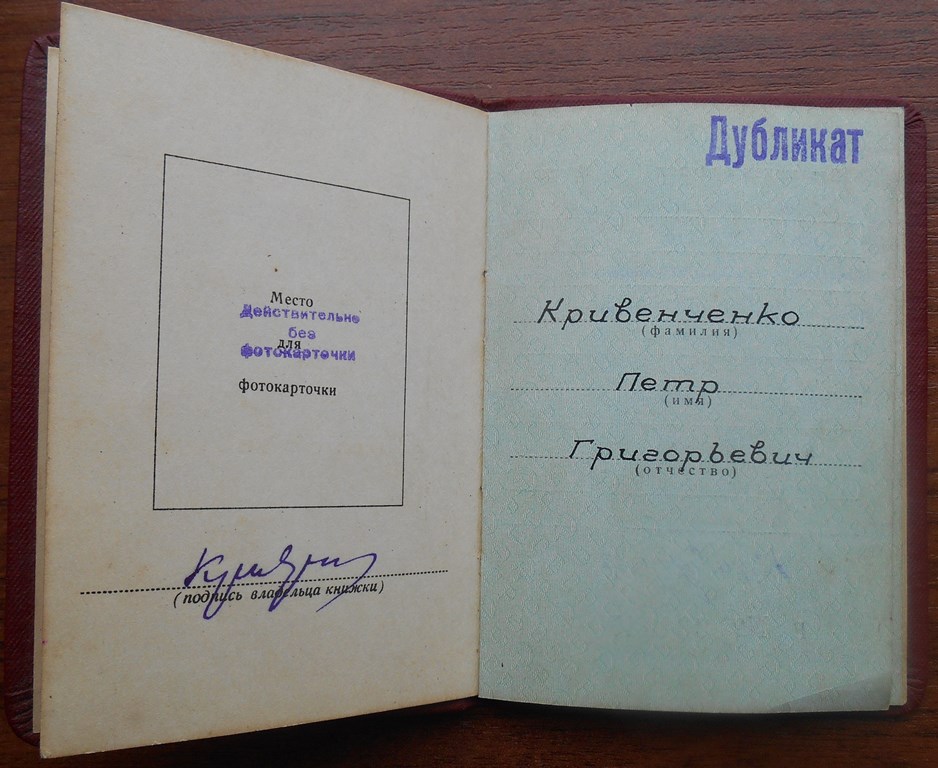 Место
Действительно
без
для
фотокарточки
фотокарточки
(подпись владельца книжки)
Дубликат
Кривенченко
(фамилия)
Петр
(имя)
Григорьевич
(отчество)